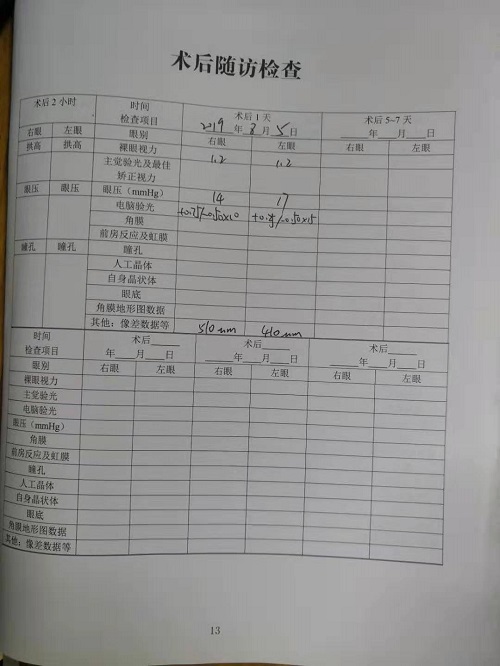 术后随访检查
术后 2 小时 时间 术后 1 天 术后 5~7 天
检查项目 2019年8月5日 ____年____月____日
右眼 左眼 眼别 右眼 左眼 右眼 左眼
拱高 拱高 裸眼视力
主觉验光及最佳 1.2 1.2
矫正视力
眼压 眼压 眼压(mmHg) 14 17
电脑验光 +0.75/-0.50×10
角膜
前房反应及虹膜
瞳孔 瞳孔 瞳孔
人工晶体
自身晶状体
眼底
角膜地形图数据
其他:像差数据等 510um 410um
时间 术后____ 术后____ 术后____
检查项目 ____年____月____日 ____年____月____日 ____年____月____日
眼别 右眼 左眼 右眼 左眼 右眼 左眼
裸眼视力
主觉验光
电脑验光
眼压(mmHg)
角膜
前房反应及虹膜
瞳孔
人工晶体
自身晶状体
眼底
角膜地形图数据
其他:像差数据等
13